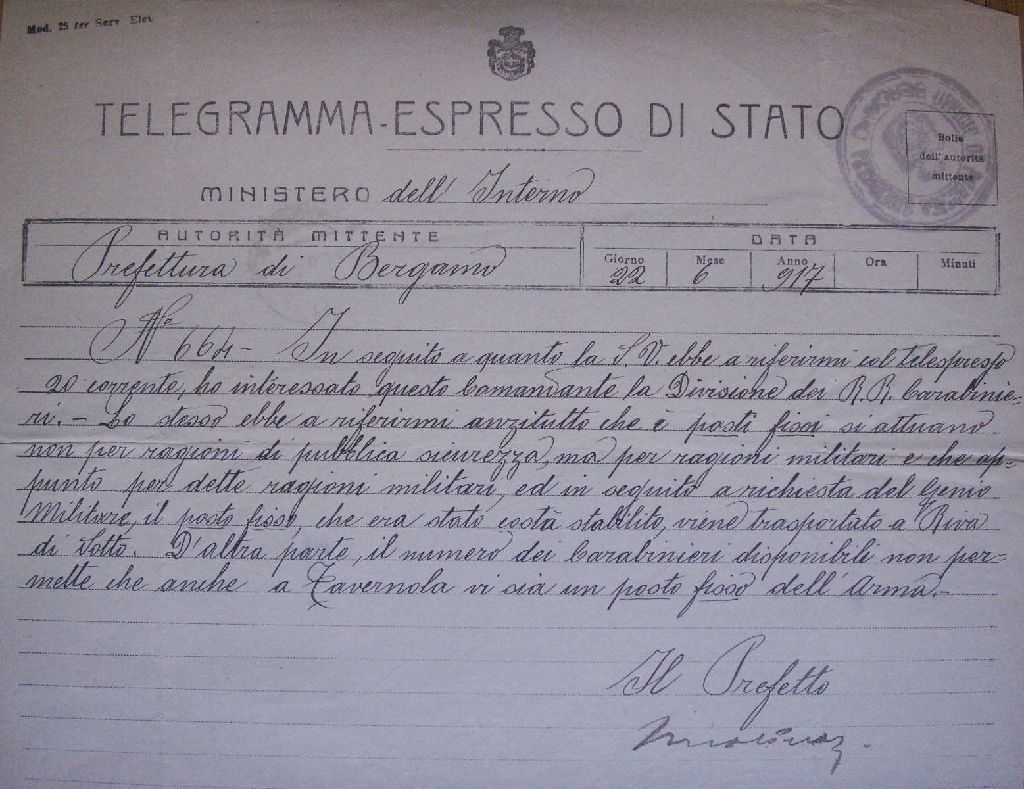 Mod. 25 ter Serv. Elet.
TELEGRAMMA-ESPRESSO DI STATO
Bollo
dell'autorità
mittente
MINISTERO dell'Interno
AUTORITÀ MITTENTE
Prefettura di Bergamo
DATA
Giorno Mese Anno Ora Minuti
22 6 917
No 664 - In seguito a quanto la S.V. ebbe a riferirmi col telespresso
20 corrente, ho interessato questo Comandante la Divisione dei R.R. Carabinie=
ri. - Lo stesso ebbe a riferirmi anzitutto che i posti fissi si attuano
non per ragioni di pubblica sicurezza, ma per ragioni militari e che ap=
punto per dette ragioni militari, ed in seguito a richiesta del Genio
Militare, il posto fisso, che era stato costà stabilito, viene trasportato a Riva
di Solto. D'altra parte, il numero dei Carabinieri disponibili non per=
mette che anche a Tavernola vi sia un posto fisso dell'Arma. -
Il Prefetto